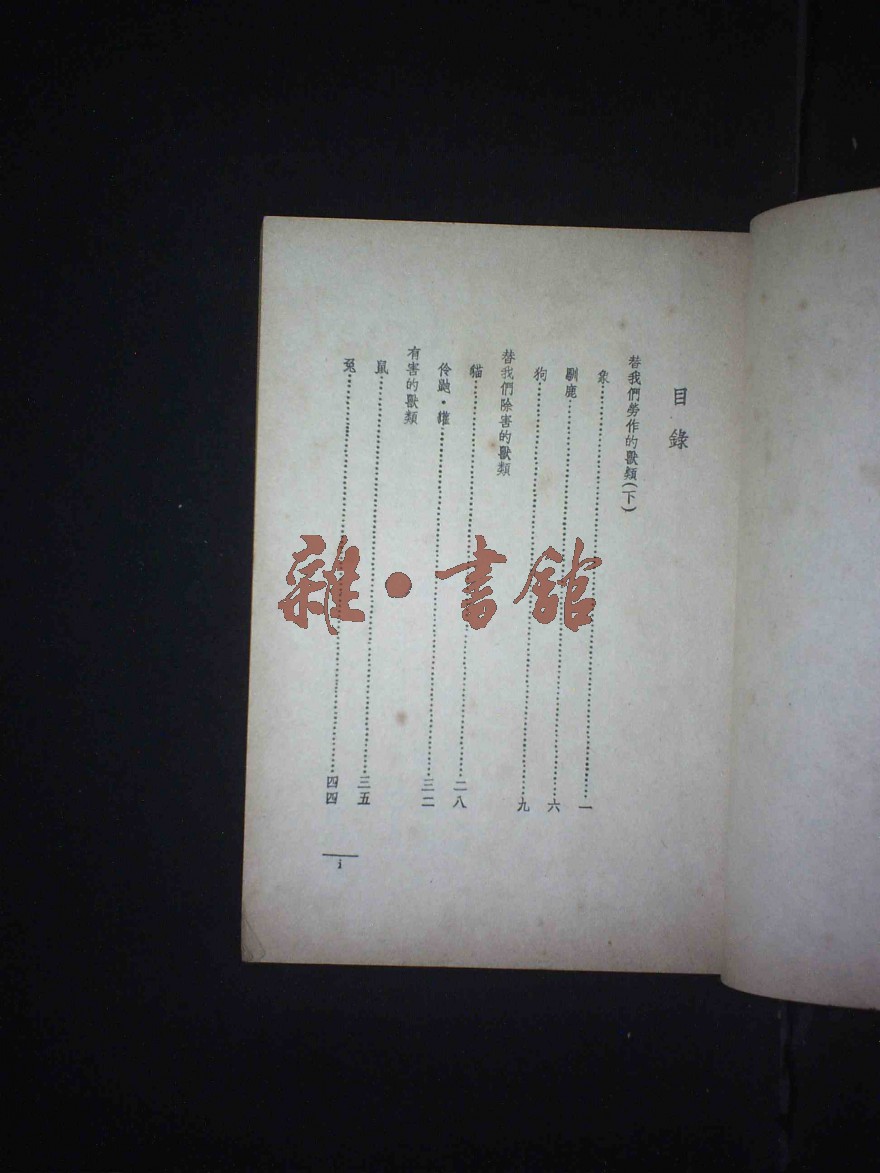 目錄
替我們勞作的獸類(下)
象 一
馴鹿 六
狗 九
替我們除害的獸類
貓 二八
伶鼬・獾 三二
有害的獸類
鼠 三五
兔 四四
i
雜・書館